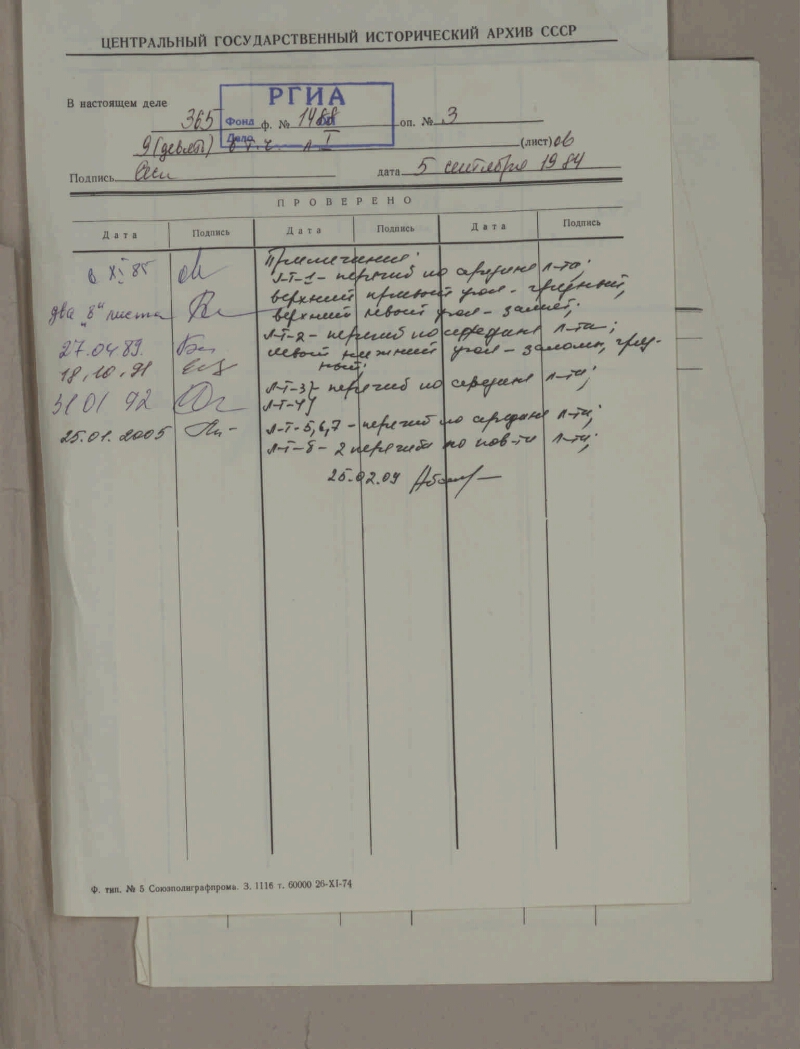 ЦЕНТРАЛЬНЫЙ ГОСУДАРСТВЕННЫЙ ИСТОРИЧЕСКИЙ АРХИВ СССР
РГИА
В настоящем деле
365 Фонд ф. № 1488 оп. № 3
9 (девять) Дело в т.ч. л I (лист)ов
Подпись дата 5 сентября 1984
ПРОВЕРЕНО
Дата Подпись Дата Подпись Дата Подпись
Примечание:
в XI 85 Л-I-1 - перегиб по середине л-та;
верхний правый угол - грязный,
два "8" листа верхний левый угол -
Л-I-2 - перегиб по середине л-та;
27.04 89. левый нижний угол - заломы, гряз-
18.10.91 ный;
Л-I-3 - перегиб по середине л-та;
31 01 92 Л-I-4
25.01.2005 Л-I-5,6,7 - перегиб по середине л-та;
Л-I-8 - 2 перегиба по пов-ти л-та;
25.02.09
Ф. тип. № 5 Союзполиграфпрома. З. 1116 т. 60000 26-XI-74